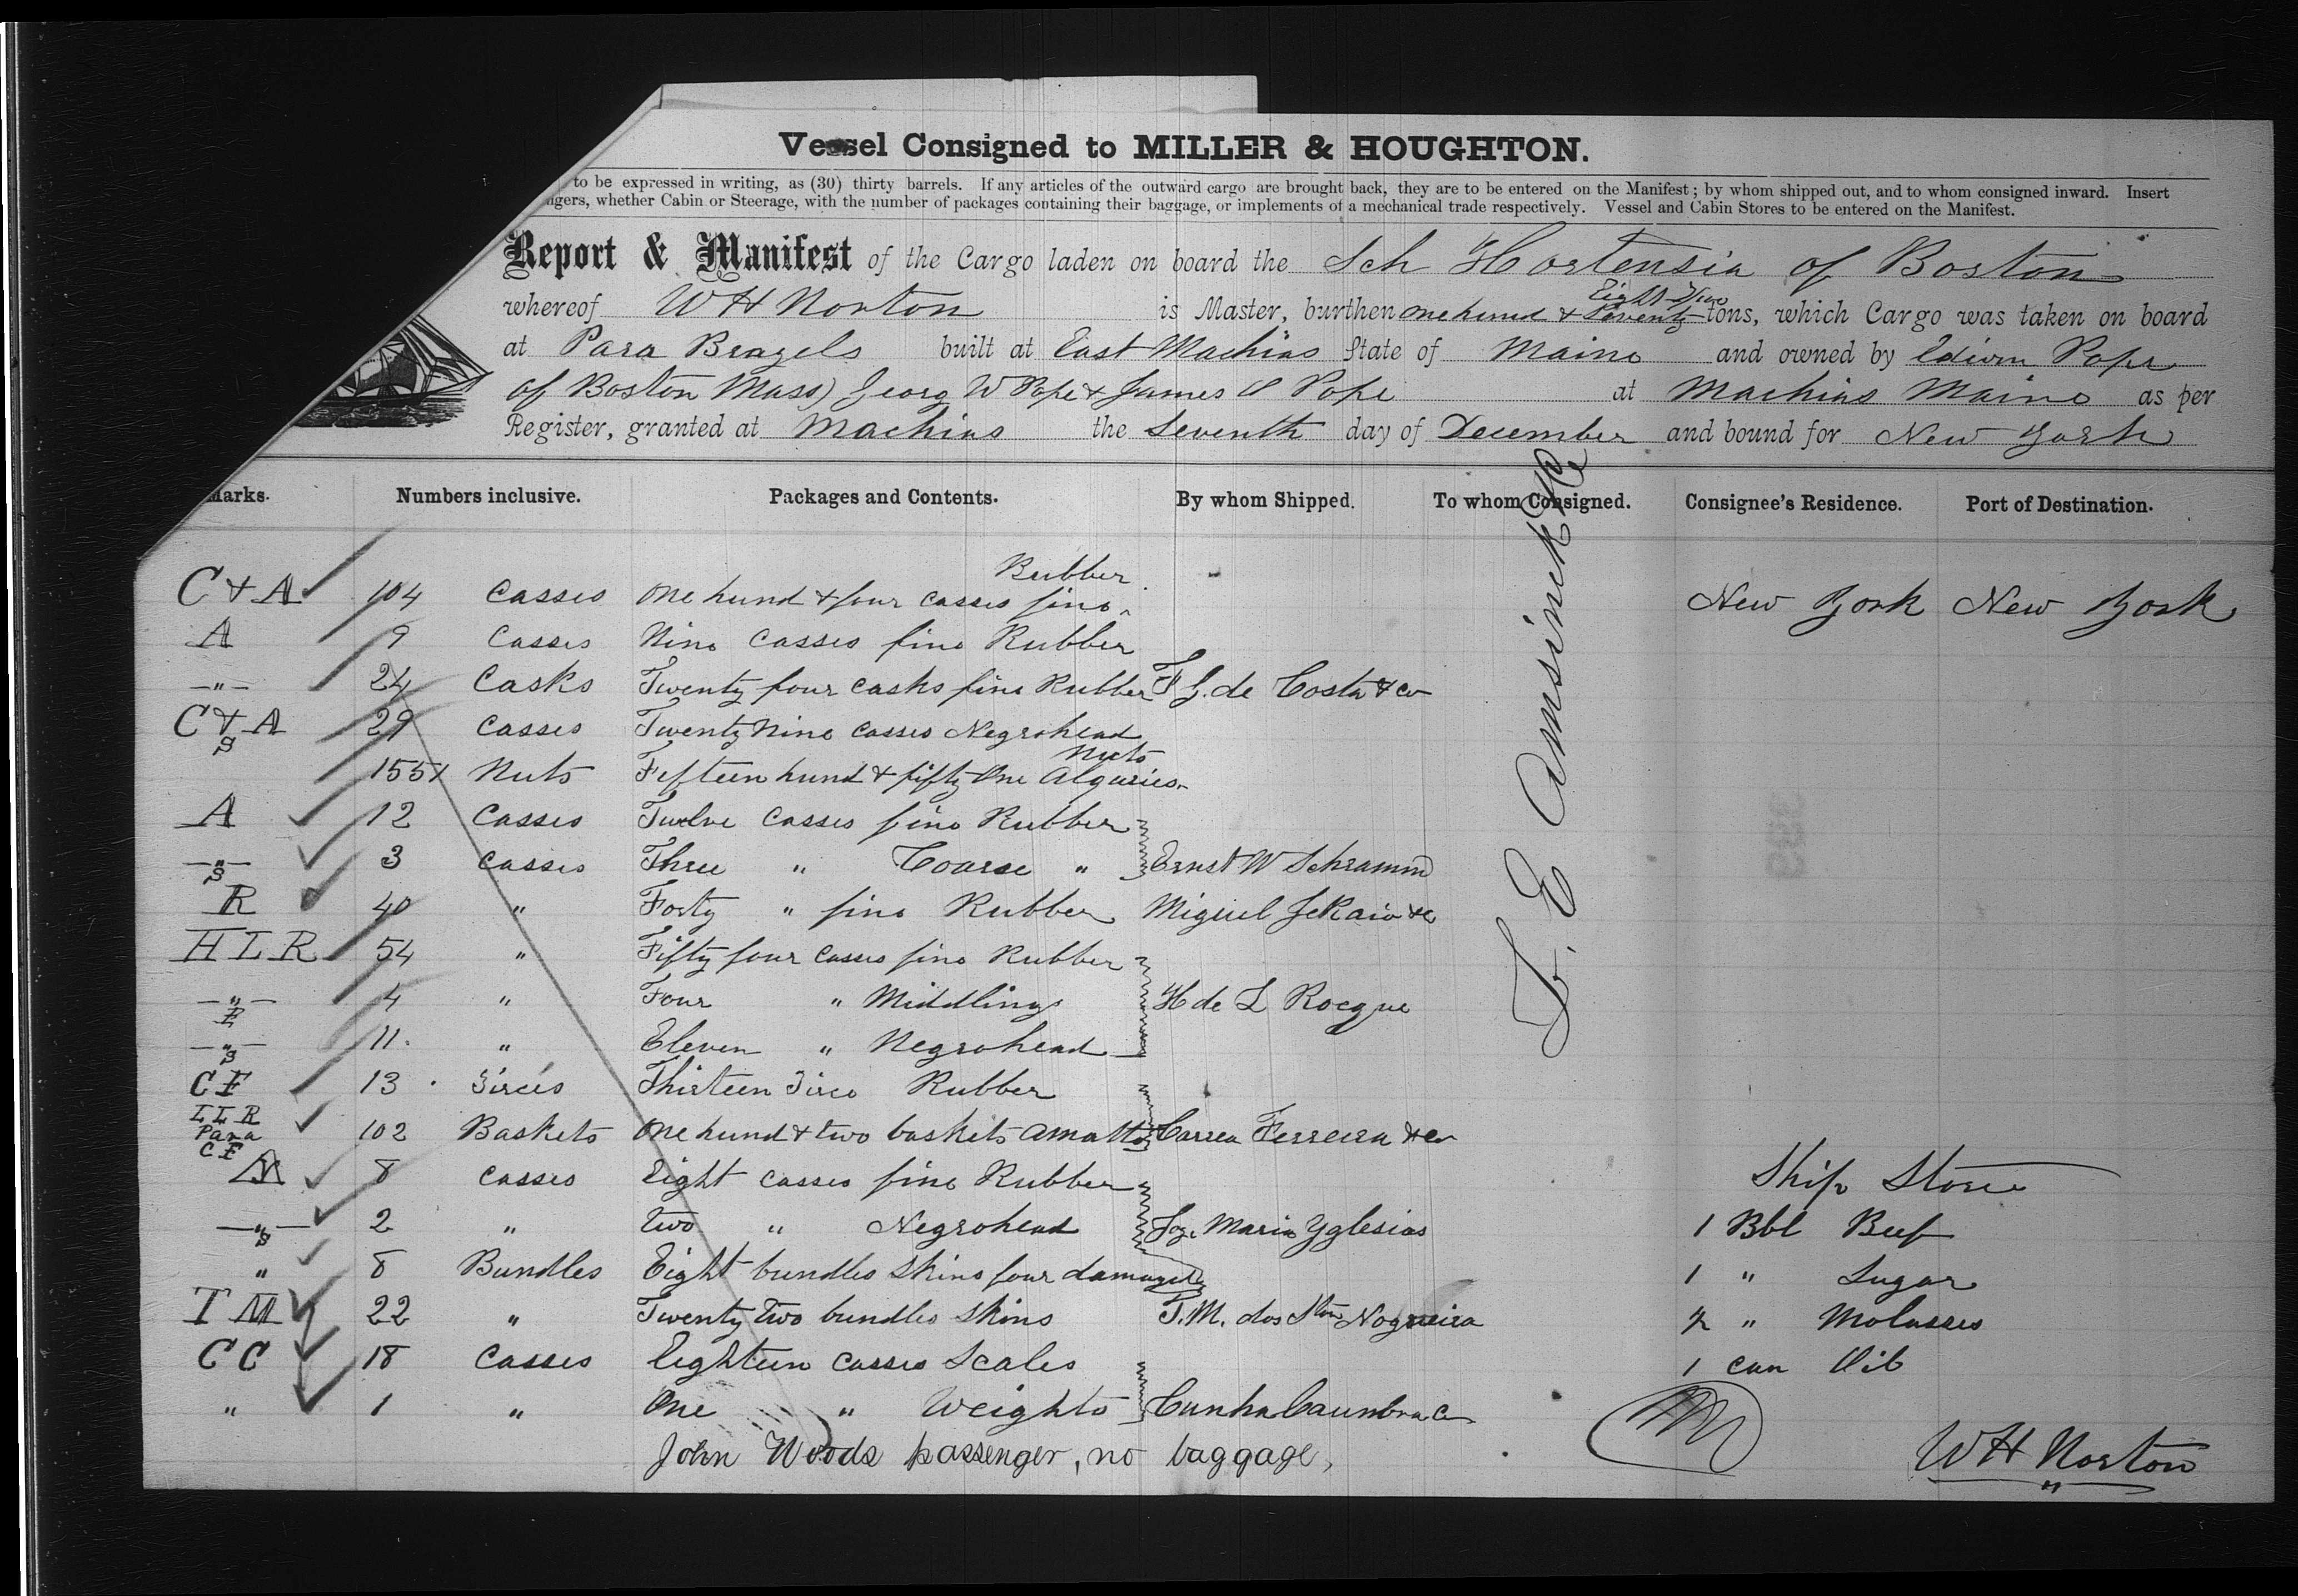 Vessel Consigned to MILLER & HOUGHTON.
to be expressed in writing, as (30) thirty barrels. If any articles of the outward cargo are brought back, they are to be entered on the Manifest; by whom shipped out, and to whom consigned inward. Insert
ngers, whether Cabin or Steerage, with the number of packages containing their baggage, or implements of a mechanical trade respectively. Vessel and Cabin Stores to be entered on the Manifest.
Report & Manifest of the Cargo laden on board the Sch Hortensia of Boston
whereof W H Norton is Master, burthen one hund & Seventy Eight tons, which Cargo was taken on board
at Para Brazels built at East Machias State of Maine and owned by Edwin Pope
of Boston Mass) Georg W Pope & James O Pope at Machias Maine as per
Register, granted at Machias the Seventh day of December and bound for New York
Marks. Numbers inclusive. Packages and Contents. By whom Shipped. To whom Consigned. Consignee's Residence. Port of Destination.
C & A 104 Casses One hund & four casses fine Rubber New York New York
A 9 Casses Nine Casses fine Rubber
—"— 24 Casks Twenty four casks fine Rubber F G. de Costa & Co
C & A S 29 Casses Twenty Nine Casses Negrohead
1551 Nuts Fifteen hund & fifty One Alquries Nuts
A 12 Casses Twelve Casses fine Rubber
—"— S 3 Casses Three " Coarse " Ernst W Schramm
R 40 " Forty " fine Rubber Miguel J & Co
H L R 54 " Fifty four casses fine Rubber
—"— E 4 " Four " Middling H de L Rocque
—"— S 11. " Eleven " Negrohead
C F 13 Tirces Thirteen Tirce Rubber
L L R Para C F 102 Baskets One hund & two baskets Correa Ferreira & Co
N 8 Casses Eight casses fine Rubber
—"— S 2 " Two " Negrohead Maria Yglesias
" 8 Bundles Eight bundles Skins four damaged
T M 22 " Twenty two bundles Skins T. M. dos Stos Nogueira
C C 18 Casses Eighteen Casses Scales
" 1 " One " Weights Cunha Co
John Woods passenger, no baggage,
L. E Amsinck & Co
Ship Stores
1 Bbl Beef
1 " Sugar
½ " Molasses
1 Can Oil
W H Norton